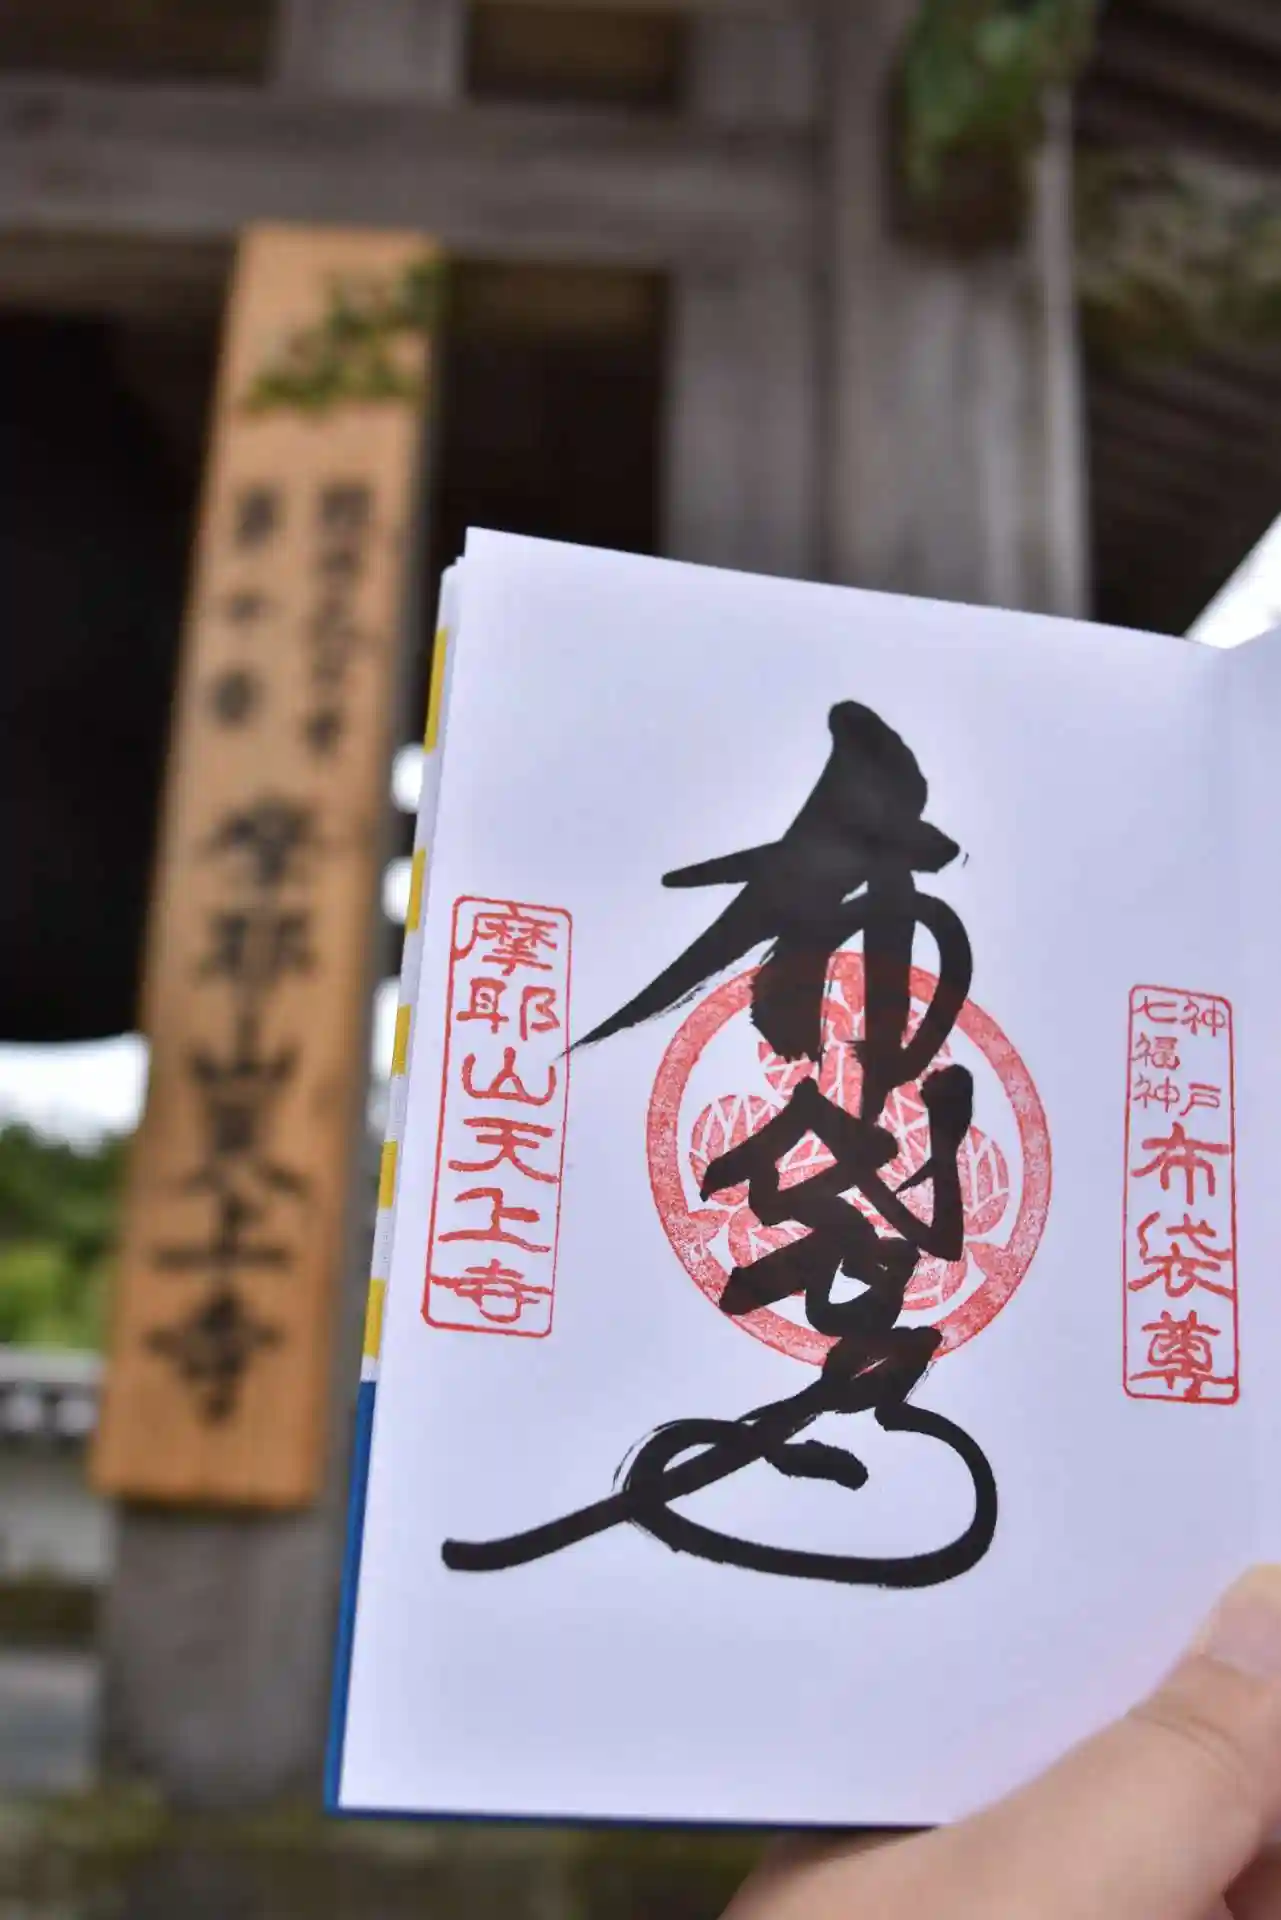 神戸
七福神
布袋尊
布袋尊
摩耶山天上寺
第十番
摩耶山天上寺